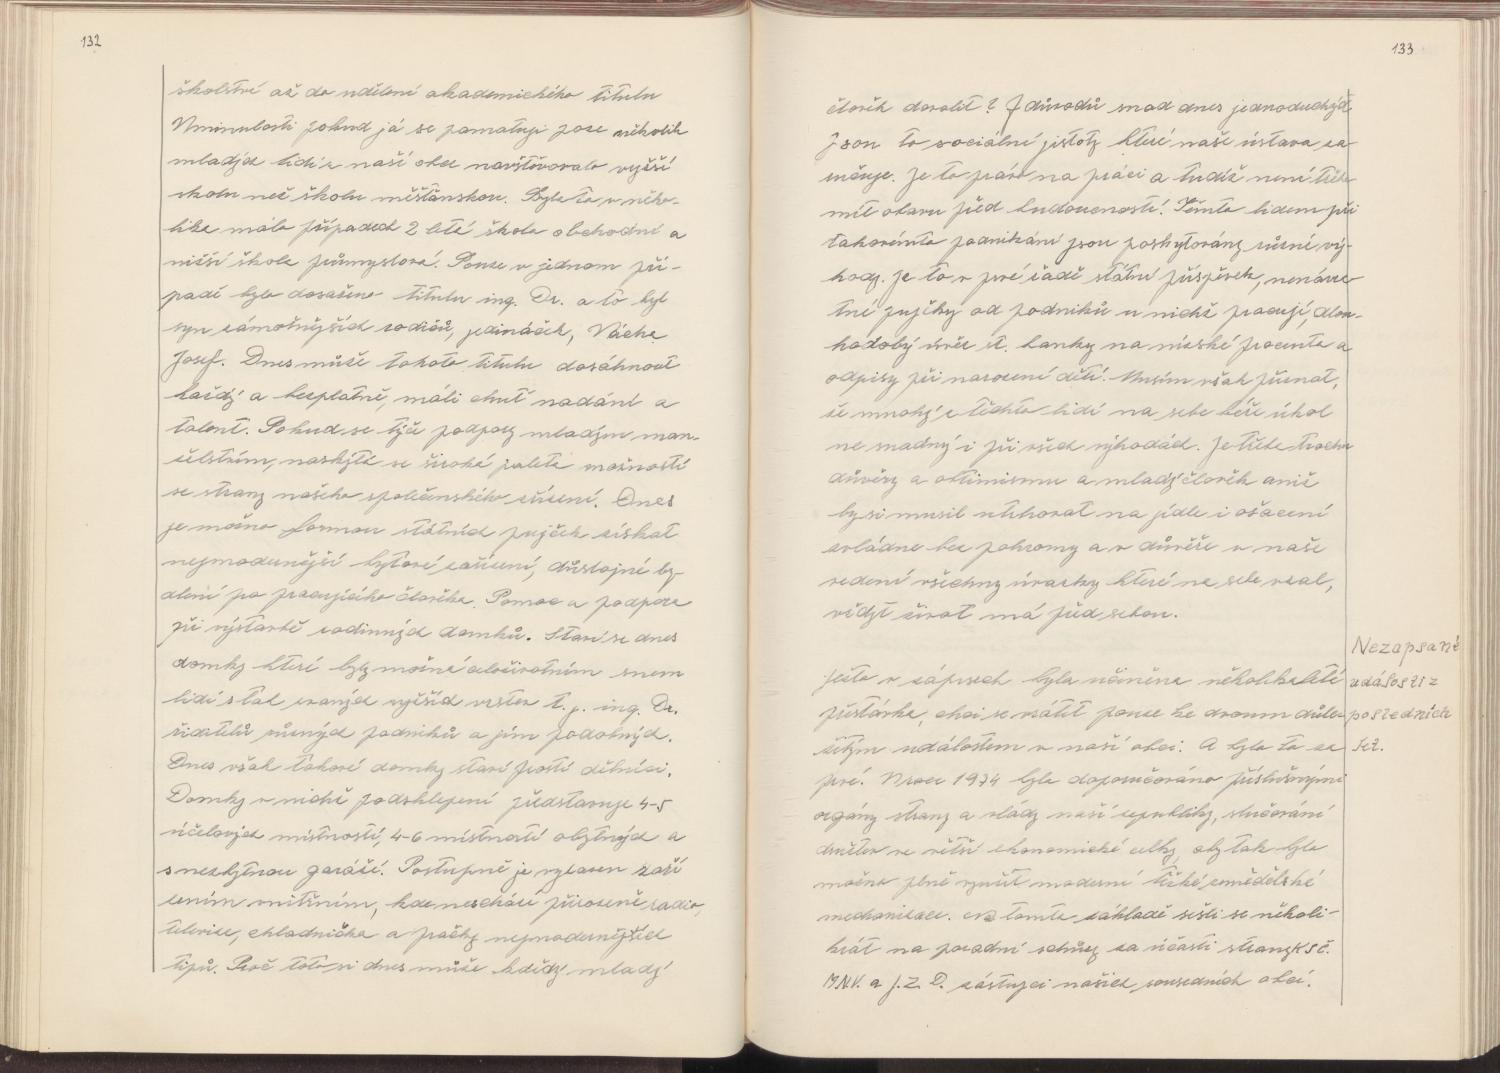 132
školství až do udělení akademického titulu
Vminulosti pokud já se pamatuji pose několik
mladých lidí z naší obce navštěvovalo vyšší
školu než školu měšťanskou. Bylo to v něko-
lika málo případech 2 letá škola obchodní a
nižší škola průmyslová. Pouze v jednom pří-
padě bylo dosaženo titulu ing. Dr. a to byl
syn zámožnějších rodičů, jedináček, Vácha
Josef. Dnes může tohoto titulu dosáhnout
každý a bezplatně, máli chuť nadání a
talent. Pokud se týče podpory mladým man-
želstvím, naskýtá se široká paleta možností
se strany našeho společenského zřízení. Dnes
je možno formou státních pujček získat
nejmodernější bytové zařízení, důstojné by-
dlení po pracujícího člověka. Pomoc a podpora
při výstavbě rodinných domků. Staví se dnes
domky které byly možné celoživotním snem
lidí z tak zvaných vyšších vrstev t. j. ing. Dr.
ředitelů různých podniků a jim podobných.
Dnes však takové domky staví prostí dělníci.
Domky v nichž podsklepení představuje 4-5
účelových místností, 4-6 místností obytných a
s nezbytnou garáží. Postupně je vybaven zaří
zením vnitřním, kde neschází přirozeně radio,
televize, chladnička a pračky nejmodernějších
tipů. Proč toto si dnes může každý mladý
133
člověk dovolit? Z důvodů snad dnes jednoduchých
Jsou to sociální jistoty které naše ústava za
ručuje. Je to právo na práci a tudíž není třeba
mít obavu před budoucností. Těmto lidem při
takovémto podnikání jsou poskytovány různé vý-
hody. Je to v prvé řadě státní příspěvek, nenávra
tné pujčky od podniků u nichž pracují, dlou-
hodobý úvěr st. banky na nízské procento a
odpisy při narození dětí. Musím však přiznat,
že mnohý z těchto lidí na sebe béře úkol
ne snadný i při všech výhodách. Je třeba trochu
důvěry a obtimismu a mladý člověk aniž
by si musil utrhovat na jídle i ošacení
zvládne bez pohromy a v důvěře v naše
vedení všechny úvazky které na sebe vzal,
vždyť život má před sebou.
Nezapsané
události z
posledních
let.
Ježto v zápisech byla učiněna několikaletá
přestávka, chci se vrátit pouze ke dvoum důle-
žitým událostem v naší obci. A bylo to za
prvé. V roce 1974 bylo doporučováno příslušnými
orgány strany a vlády naší republiky, slučování
družtev ve větší ekonomické celky, aby tak bylo
možno plně využít moderní těžké zemědělské
mechanizace. Na tomto základě sešli se několi-
krát na poradní schůzy za účasti strany KSČ.
M.N.V. a J.Z.D. zástupci našich sousedních obcí.